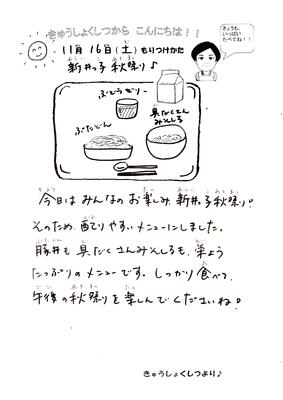 きゅうしょくしつから こんにちは!!
きょうも、
いっぱい
たべてね!!
11月16日(土)もりつけかた
新井っ子 秋祭り♪
ぶどうゼリー
ぶたどん
具だくさん
みそしる
今日はみんなのお楽しみ、新井っ子秋祭り!
そのため、配りやすいメニューにしました。
豚丼も具だくさんみそしるも、栄よう
たっぷりのメニューです。しっかり食べて、
午後の秋祭りを楽しんでくださいね!
きゅうしょくしつより♪